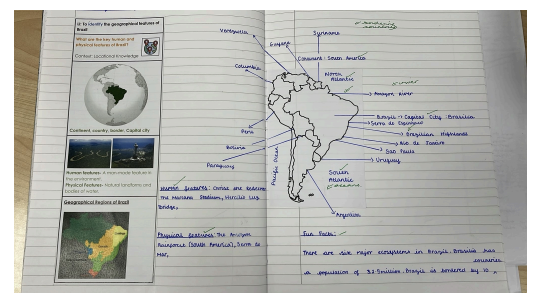 LI: To identify the geographical features of
Brazil
What are the key human and
physical features of Brazil?
Context: Locational Knowledge
Continent, country, border, Capital city
Human features- A man-made feature in
the environment.
Physical Features- Natural landforms and
bodies of water.
Geographical Regions of Brazil
Venezuela
Guyana
Suriname
Continent: South America
Columbia
North
Atlantic
Amazon River
Brazil → Capital City: Brasilia
Brazilian Highlands
Rio de Janeiro
Sao Paulo
Uruguay
Peru
Bolivia
Paraguay
Pacific Ocean
South
Atlantic
oceans
Argentina
Human features: Christ the Redeemer
The Maracana Stadium, Hercilio Luz
Bridge,
Physical features: The Amazon
Rainforest (South America), Serra do
Mar,
Fun Facts:
There are six major ecosystems in Brazil. Brasilia has
countries
a population of million. Brazil is bordered by 10